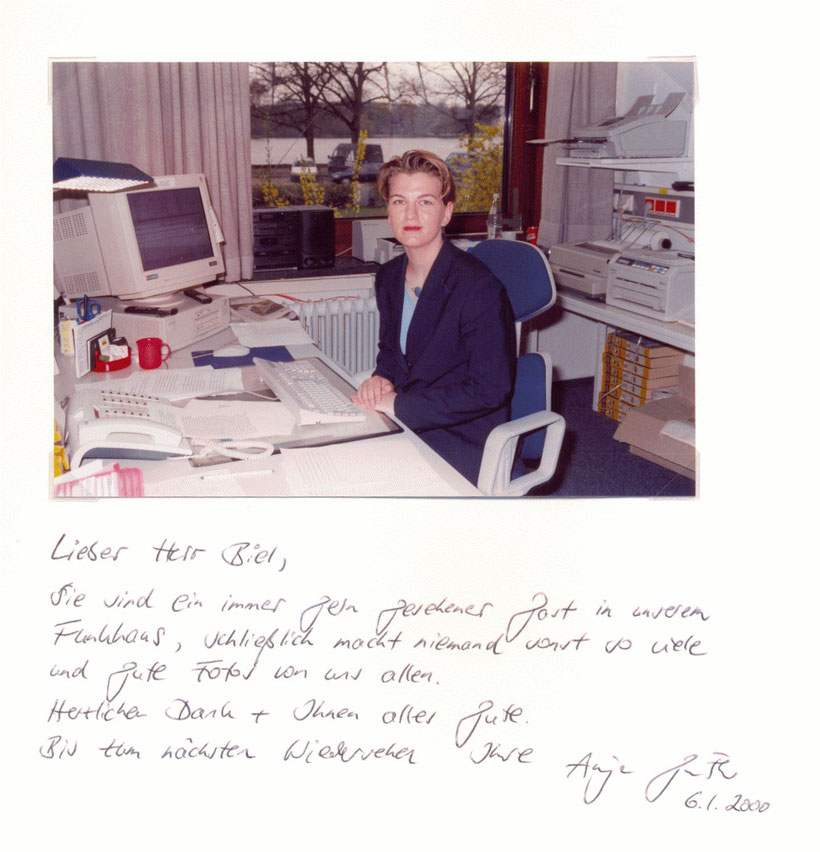 Lieber Herr Biel,
Sie sind ein immer gern gesehener Gast in unserem
Funkhaus, schließlich macht niemand sonst so viele
und gute Fotos von uns allen.
Herzlichen Dank + Ihnen alles Gute.
Bis zum nächsten Wiedersehen Ihre
Anja
6.1.2000